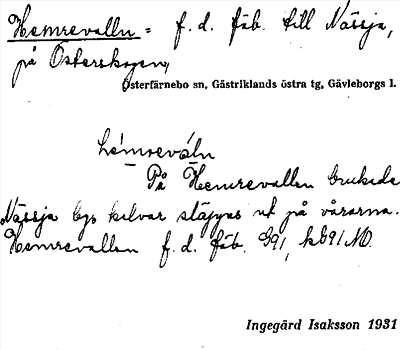 Hemrevalln = f. d. fäb. till Nässja,
på Österskogen,
Österfärnebo sn, Gästriklands östra tg, Gävleborgs l.
hémreváln
På Hemrevallen brukade
Nässja bys kulvar släppas ut på vårarna.
Hemrevallen f. d. fäb. G91, kG91NO.
Ingegärd Isaksson 1931